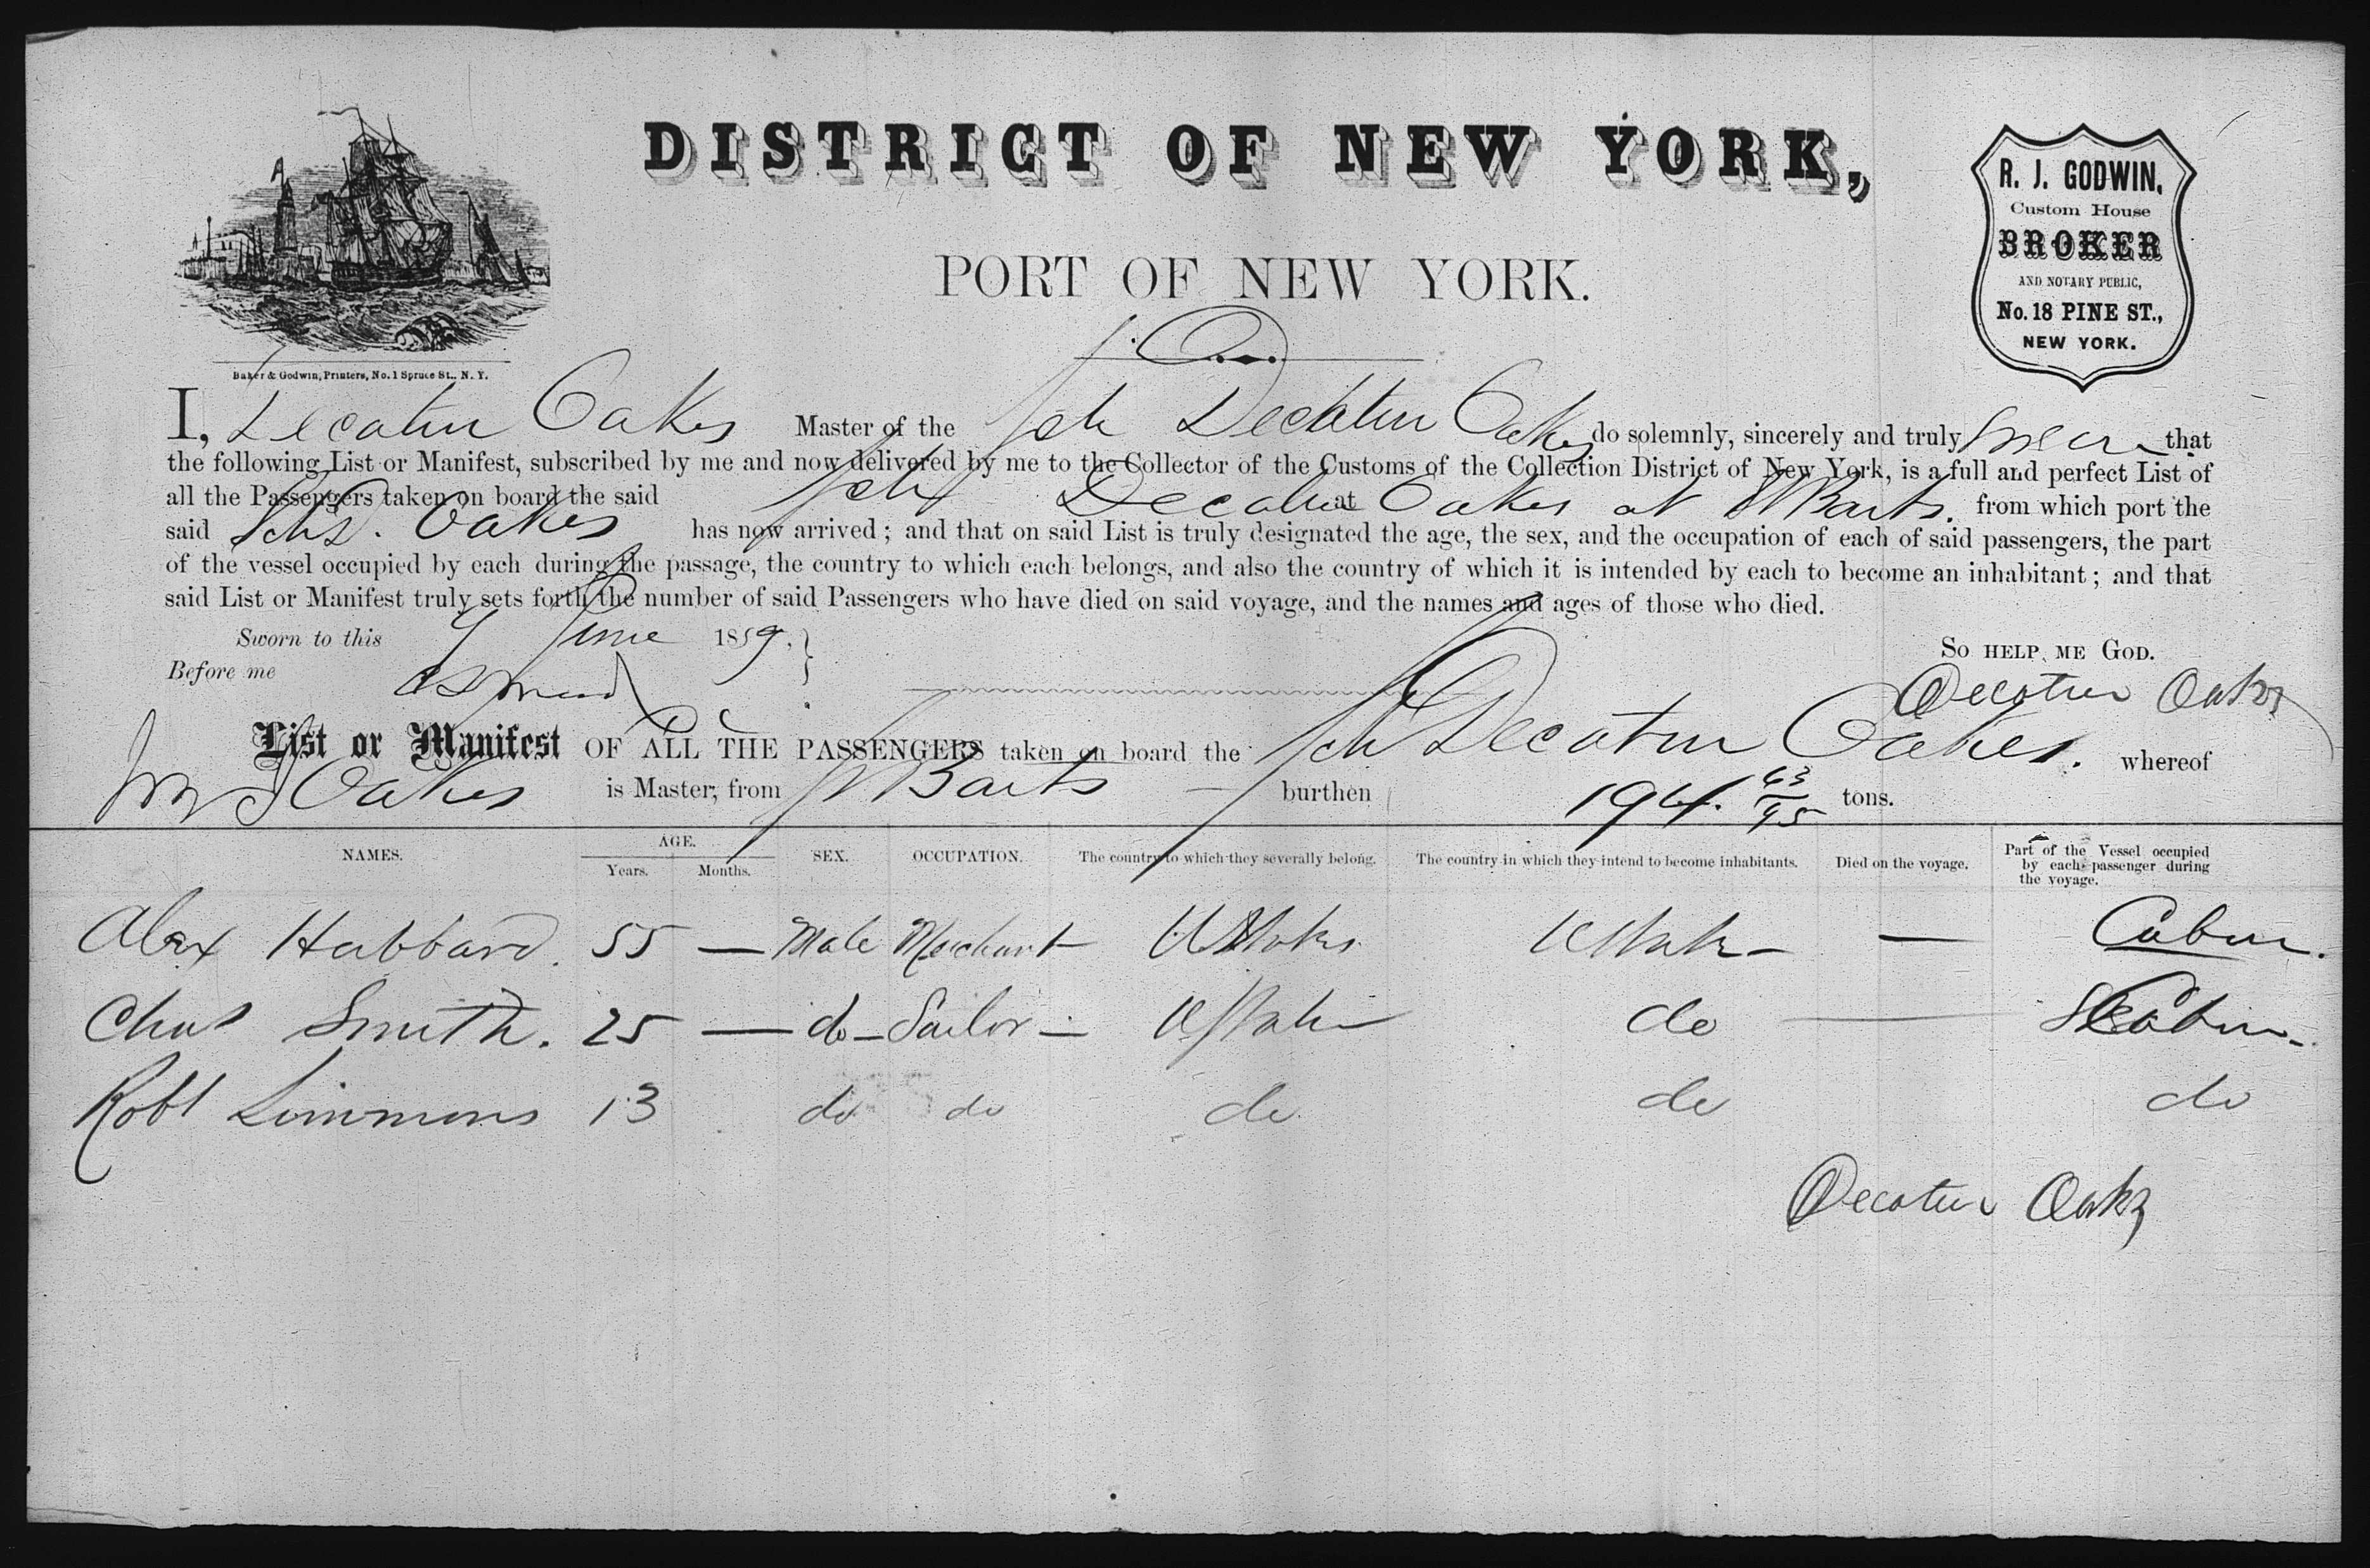 DISTRICT OF NEW YORK,
PORT OF NEW YORK.
R. J. GODWIN,
Custom House
BROKER
AND NOTARY PUBLIC,
No. 18 PINE ST.,
NEW YORK.
Baker & Godwin, Printers, No. 1 Spruce St., N. Y.
I, Decatur Oakes Master of the Sch Decatur Oakes do solemnly, sincerely and truly swear that
the following List or Manifest, subscribed by me and now delivered by me to the Collector of the Customs of the Collection District of New York, is a full and perfect List of
all the Passengers taken on board the said Sch Decatur Oakes at St Barts. from which port the
said Oakes has now arrived; and that on said List is truly designated the age, the sex, and the occupation of each of said passengers, the part
of the vessel occupied by each during the passage, the country to which each belongs, and also the country of which it is intended by each to become an inhabitant; and that
said List or Manifest truly sets forth the number of said Passengers who have died on said voyage, and the names and ages of those who died.
Sworn to this 9 June 1859.
So help me God.
Before me
Decatur Oakes
List or Manifest OF ALL THE PASSENGERS taken on board the Sch Decatur Oakes. whereof
Oakes is Master, from St Barts burthen 194. 63/95 tons.
NAMES. AGE. Years. Months. SEX. OCCUPATION. The country to which they severally belong. The country in which they intend to become inhabitants. Died on the voyage. Part of the Vessel occupied by each passenger during the voyage.
Alex Hubbard. 55 — Male Merchant U States U States — Cabin.
Chas Smith. 25 — do — Sailor — U States do — Cabin
Robt Simmons 13 do do do do do
Decatur Oakes